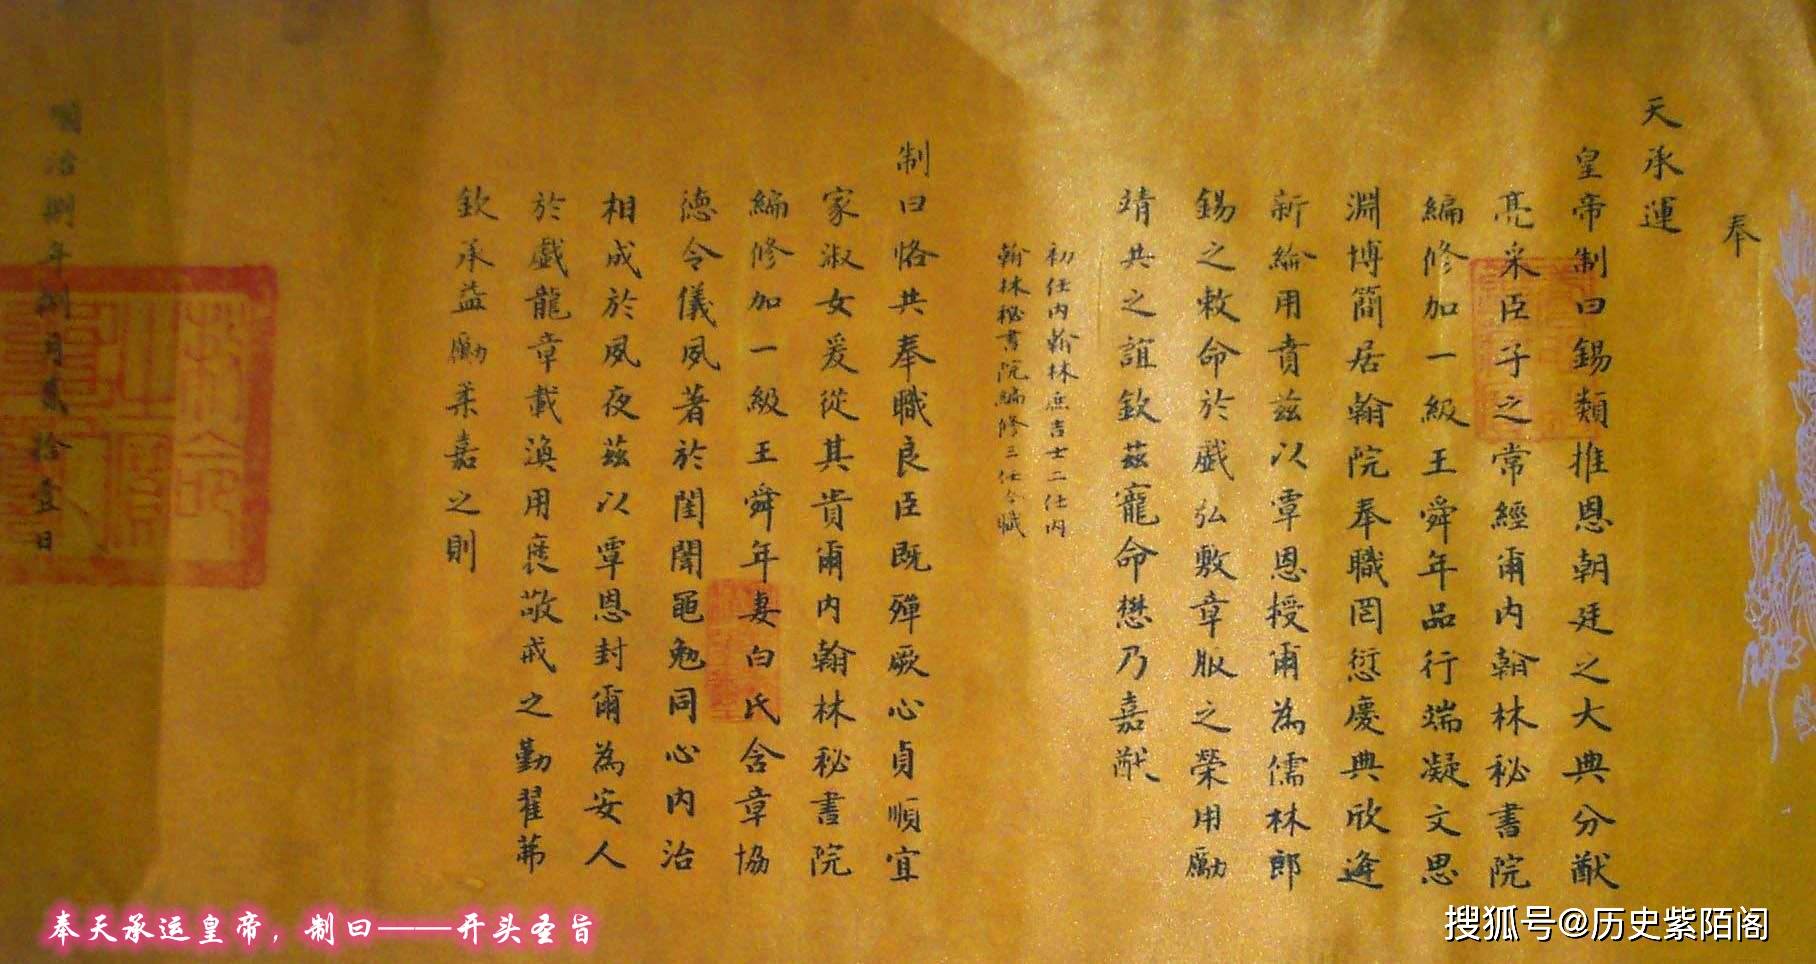 奉
天承運
皇帝制曰錫類推恩朝廷之大典分猷
亮采臣子之常經爾内翰林秘書院
編修加一級王舜年品行端凝文思
淵博簡居翰院奉職罔愆慶典欣逢
新綸用賁兹以覃恩授爾為儒林郎
錫之敕命於戲弘敷章服之榮用勵
靖共之誼欽兹寵命懋乃嘉猷
初任内翰林庶吉士二任内
翰林秘書院編修三任今職
制曰恪共奉職良臣既殫厥心貞順宜
家淑女爰從其貴爾内翰林秘書院
編修加一級王舜年妻白氏含章協
德令儀夙著於閨闈黽勉同心内治
相成於夙夜兹以覃恩封爾為安人
於戲龍章載渙用褒敬戒之勤翟茀
欽承益勵柔嘉之則
治捌年捌月貳拾壹日
敕命
之寶
奉天承运皇帝，制曰——开头圣旨
搜狐号@历史紫陌阁